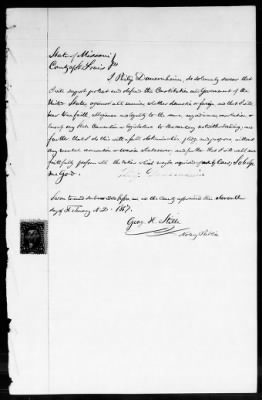 State of Missouri
County of St. Louis SS
I Philip Dannenhauer, do solemnly swear that
I will support, protect and defend the Constitution and Government of the
United States against all enemies, whether domestic or foreign, and that I will
bear true faith, allegiance and loyalty to the same, any ordinance, resolution or
law of any State Convention or Legislature to the contrary notwithstanding; and
further that I do this with a full determination, pledge and purpose, without
any mental reservation or evasion whatsoever, and further that I will well and
faithfully perform all the duties which may be required of me by law, So help
me God.
Philip
Sworn to and subscribed before me in the County aforesaid this eleventh
day of February A.D. 1867.
Geo. H.
Notary Public